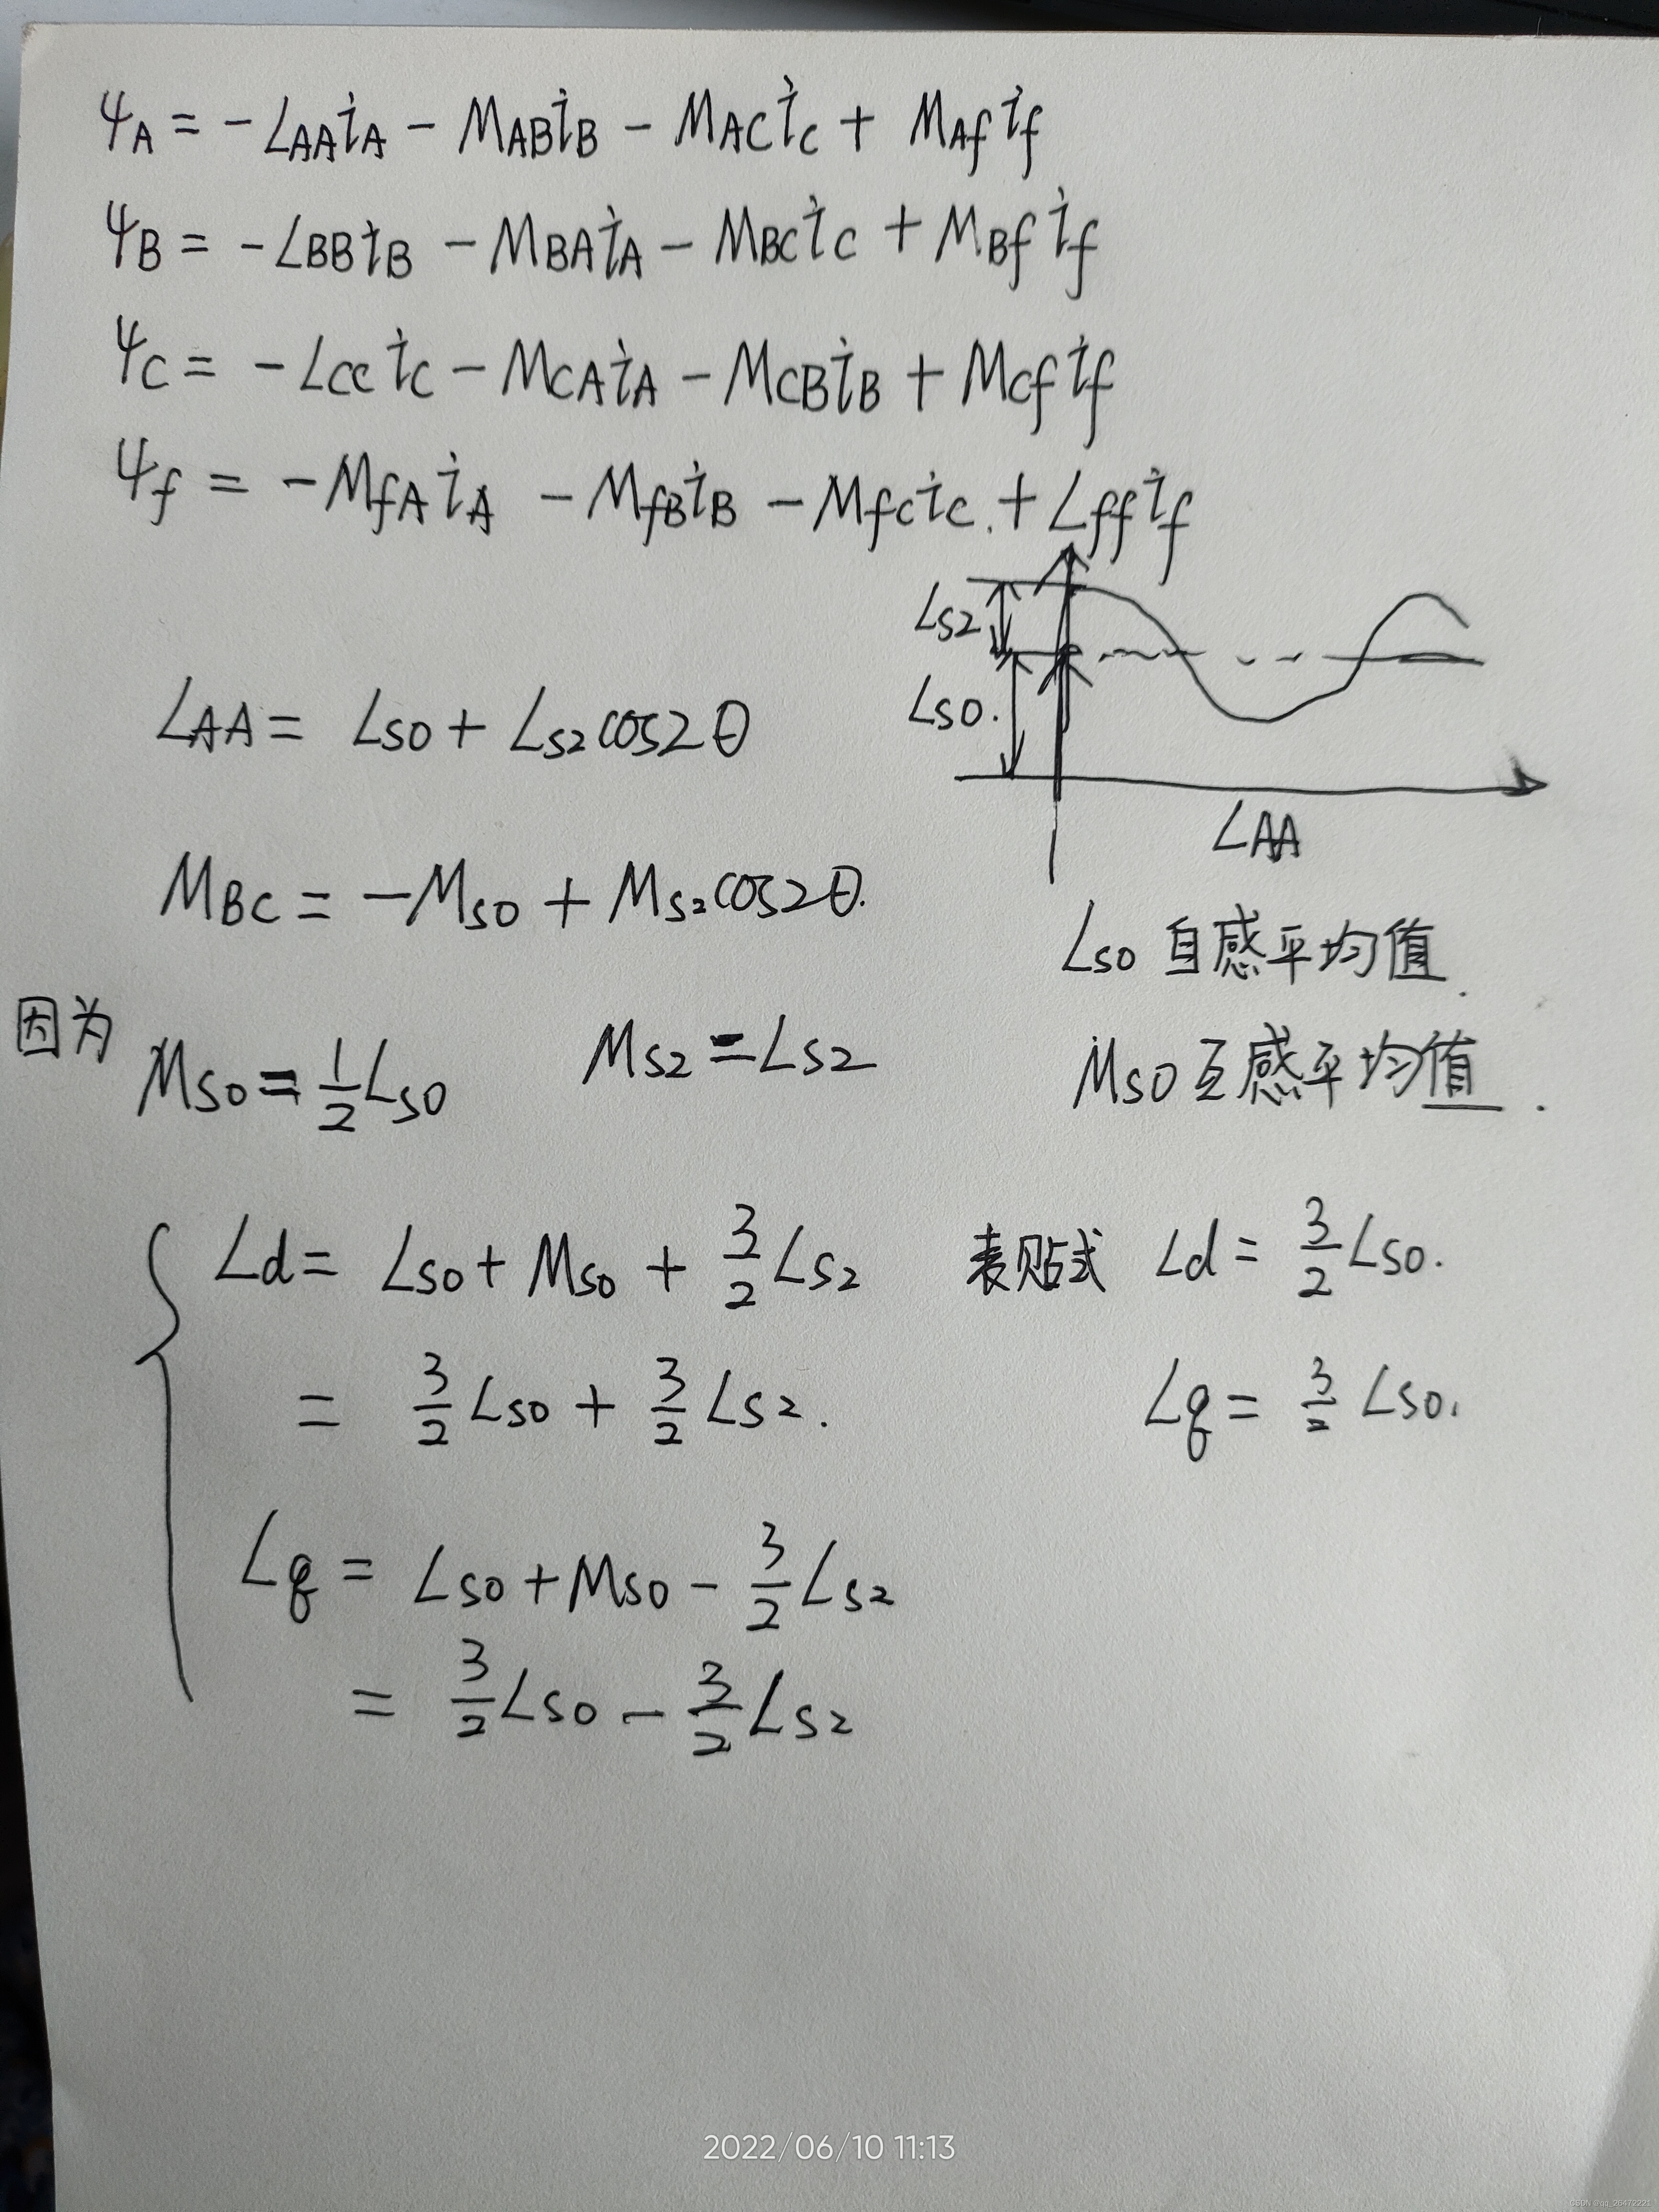 ψA = -LAAiA - MABiB - MACiC + MAfif
ψB = -LBBiB - MBAiA - MBCiC + MBfif
ψC = -LCCiC - MCAiA - MCBiB + MCfif
ψf = -MfAiA - MfBiB - MfCiC + Lffif
LS2
LS0.
LAA
LAA = LS0 + LS2cos2θ
MBC = -MS0 + MS2cos2θ.
LS0 自感平均值.
因为 MS0 = 1/2 LS0 MS2 = LS2
MS0 互感平均值.
Ld = LS0 + MS0 + 3/2 LS2
= 3/2 LS0 + 3/2 LS2.
表贴式 Ld = 3/2 LS0.
Lq = 3/2 LS0.
Lq = LS0 + MS0 - 3/2 LS2
= 3/2 LS0 - 3/2 LS2
2022/06/10 11:13
CSDN @qq_26472221